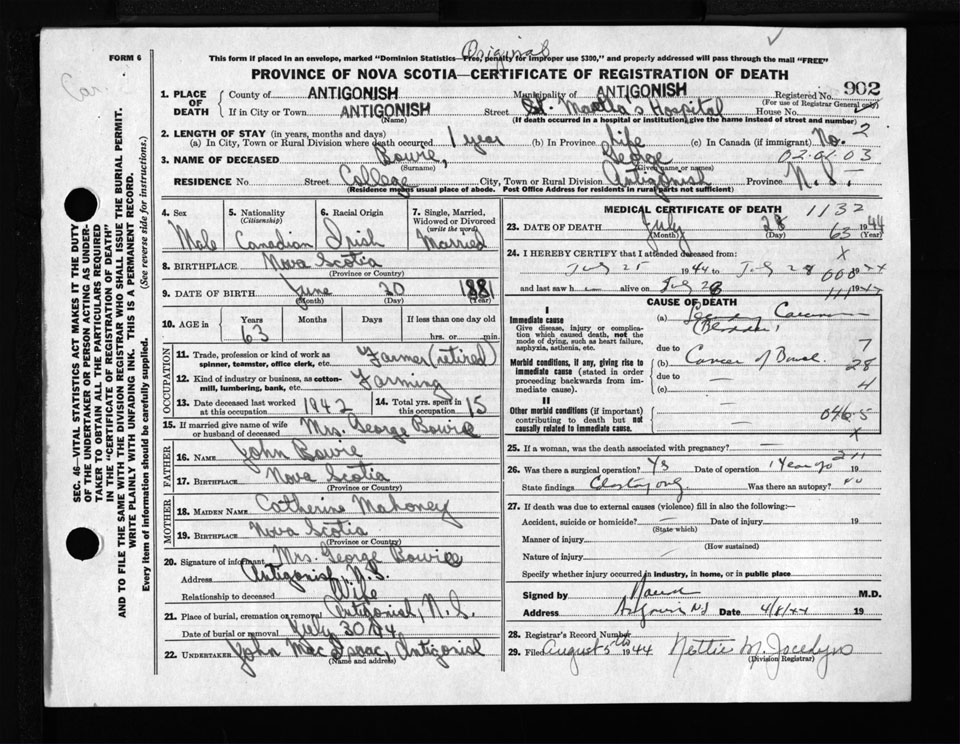 Original
FORM 6
This form if placed in an envelope, marked "Dominion Statistics—Free, penalty for improper use $300," and properly addressed will pass through the mail "FREE"
PROVINCE OF NOVA SCOTIA—CERTIFICATE OF REGISTRATION OF DEATH
SEC. 46—VITAL STATISTICS ACT MAKES IT THE DUTY
OF THE UNDERTAKER OR PERSON ACTING AS UNDER-
TAKER TO OBTAIN ALL THE PARTICULARS REQUIRED
IN THE "CERTIFICATE OF REGISTRATION OF DEATH"
AND TO FILE THE SAME WITH THE DIVISION REGISTRAR WHO SHALL ISSUE THE BURIAL PERMIT.
WRITE PLAINLY WITH UNFADING INK. THIS IS A PERMANENT RECORD.
Every item of information should be carefully supplied. (See reverse side for instructions.)
1. PLACE OF DEATH County of ANTIGONISH Municipality of ANTIGONISH Registered No. 902
(For use of Registrar General only)
If in City or Town ANTIGONISH Street St. Martha's Hospital House No.
(Name) (If death occurred in a hospital or institution, give the name instead of street and number)
2. LENGTH OF STAY (in years, months and days)
(a) In City, Town or Rural Division where death occurred 1 year (b) In Province Life (c) In Canada (if immigrant) No. 2
3. NAME OF DECEASED Bowie, George 02.01.03
(Surname) (Given name or names)
RESIDENCE No. Street College City, Town or Rural Division Antigonish Province N.S.
(Residence means usual place of abode. Post Office Address for residents in rural parts not sufficient)
4. Sex 5. Nationality (Citizenship) 6. Racial Origin 7. Single, Married, Widowed or Divorced (write the word)
Male Canadian Irish Married
8. BIRTHPLACE Nova Scotia
(Province or Country)
9. DATE OF BIRTH June 20 1881
(Month) (Day) (Year)
10. AGE in Years Months Days If less than one day old
63 hrs. or min.
OCCUPATION
11. Trade, profession or kind of work as spinner, teamster, office clerk, etc. Farmer (retired)
12. Kind of industry or business, as cotton-mill, lumbering, bank, etc. Farming
13. Date deceased last worked at this occupation 1942 14. Total yrs. spent in this occupation 15
15. If married give name of wife or husband of deceased Mrs. George Bowie
FATHER
16. Name John Bowie
17. Birthplace Nova Scotia
(Province or Country)
MOTHER
18. MAIDEN NAME Catherine Mahoney
19. BIRTHPLACE Nova Scotia
(Province or Country)
20. Signature of informant Mrs. George Bowie
Address Antigonish, N.S.
Relationship to deceased Wife
21. Place of burial, cremation or removal Antigonish, N.S.
Date of burial or removal July 30/44
22. UNDERTAKER John MacIsaac, Antigonish
(Name and address)
MEDICAL CERTIFICATE OF DEATH 1132
23. DATE OF DEATH July 28 1944
(Month) (Day) 63 (Year)
24. I HEREBY CERTIFY that I attended deceased from: X
July 25 1944 to July 28 000 1944
and last saw h alive on July 28 111 1944
CAUSE OF DEATH
I
Immediate cause (a)
Give disease, injury or complication which caused death, not the mode of dying, such as heart failure, asphyxia, asthenia, etc.
(Bladder) 7
due to
Morbid conditions, if any, giving rise to immediate cause (stated in order proceeding backwards from immediate cause). (b) Cancer of Bowel 28
due to
(c) 4
II
Other morbid conditions (if important) contributing to death but not causally related to immediate cause. 046.5
X
25. If a woman, was the death associated with pregnancy? —
26. Was there a surgical operation? Yes Date of operation 1 Year ago 19 211
State findings Was there an autopsy? no
27. If death was due to external causes (violence) fill in also the following:—
Accident, suicide or homicide? Date of injury 19
(State which)
Manner of injury
(How sustained)
Nature of injury
Specify whether injury occurred in industry, in home, or in public place
Signed by M.D.
Address Date 4/8/44 19
28. Registrar's Record Number
29. Filed August 5th 1944 Nettie M. Jocelyn
(Division Registrar)